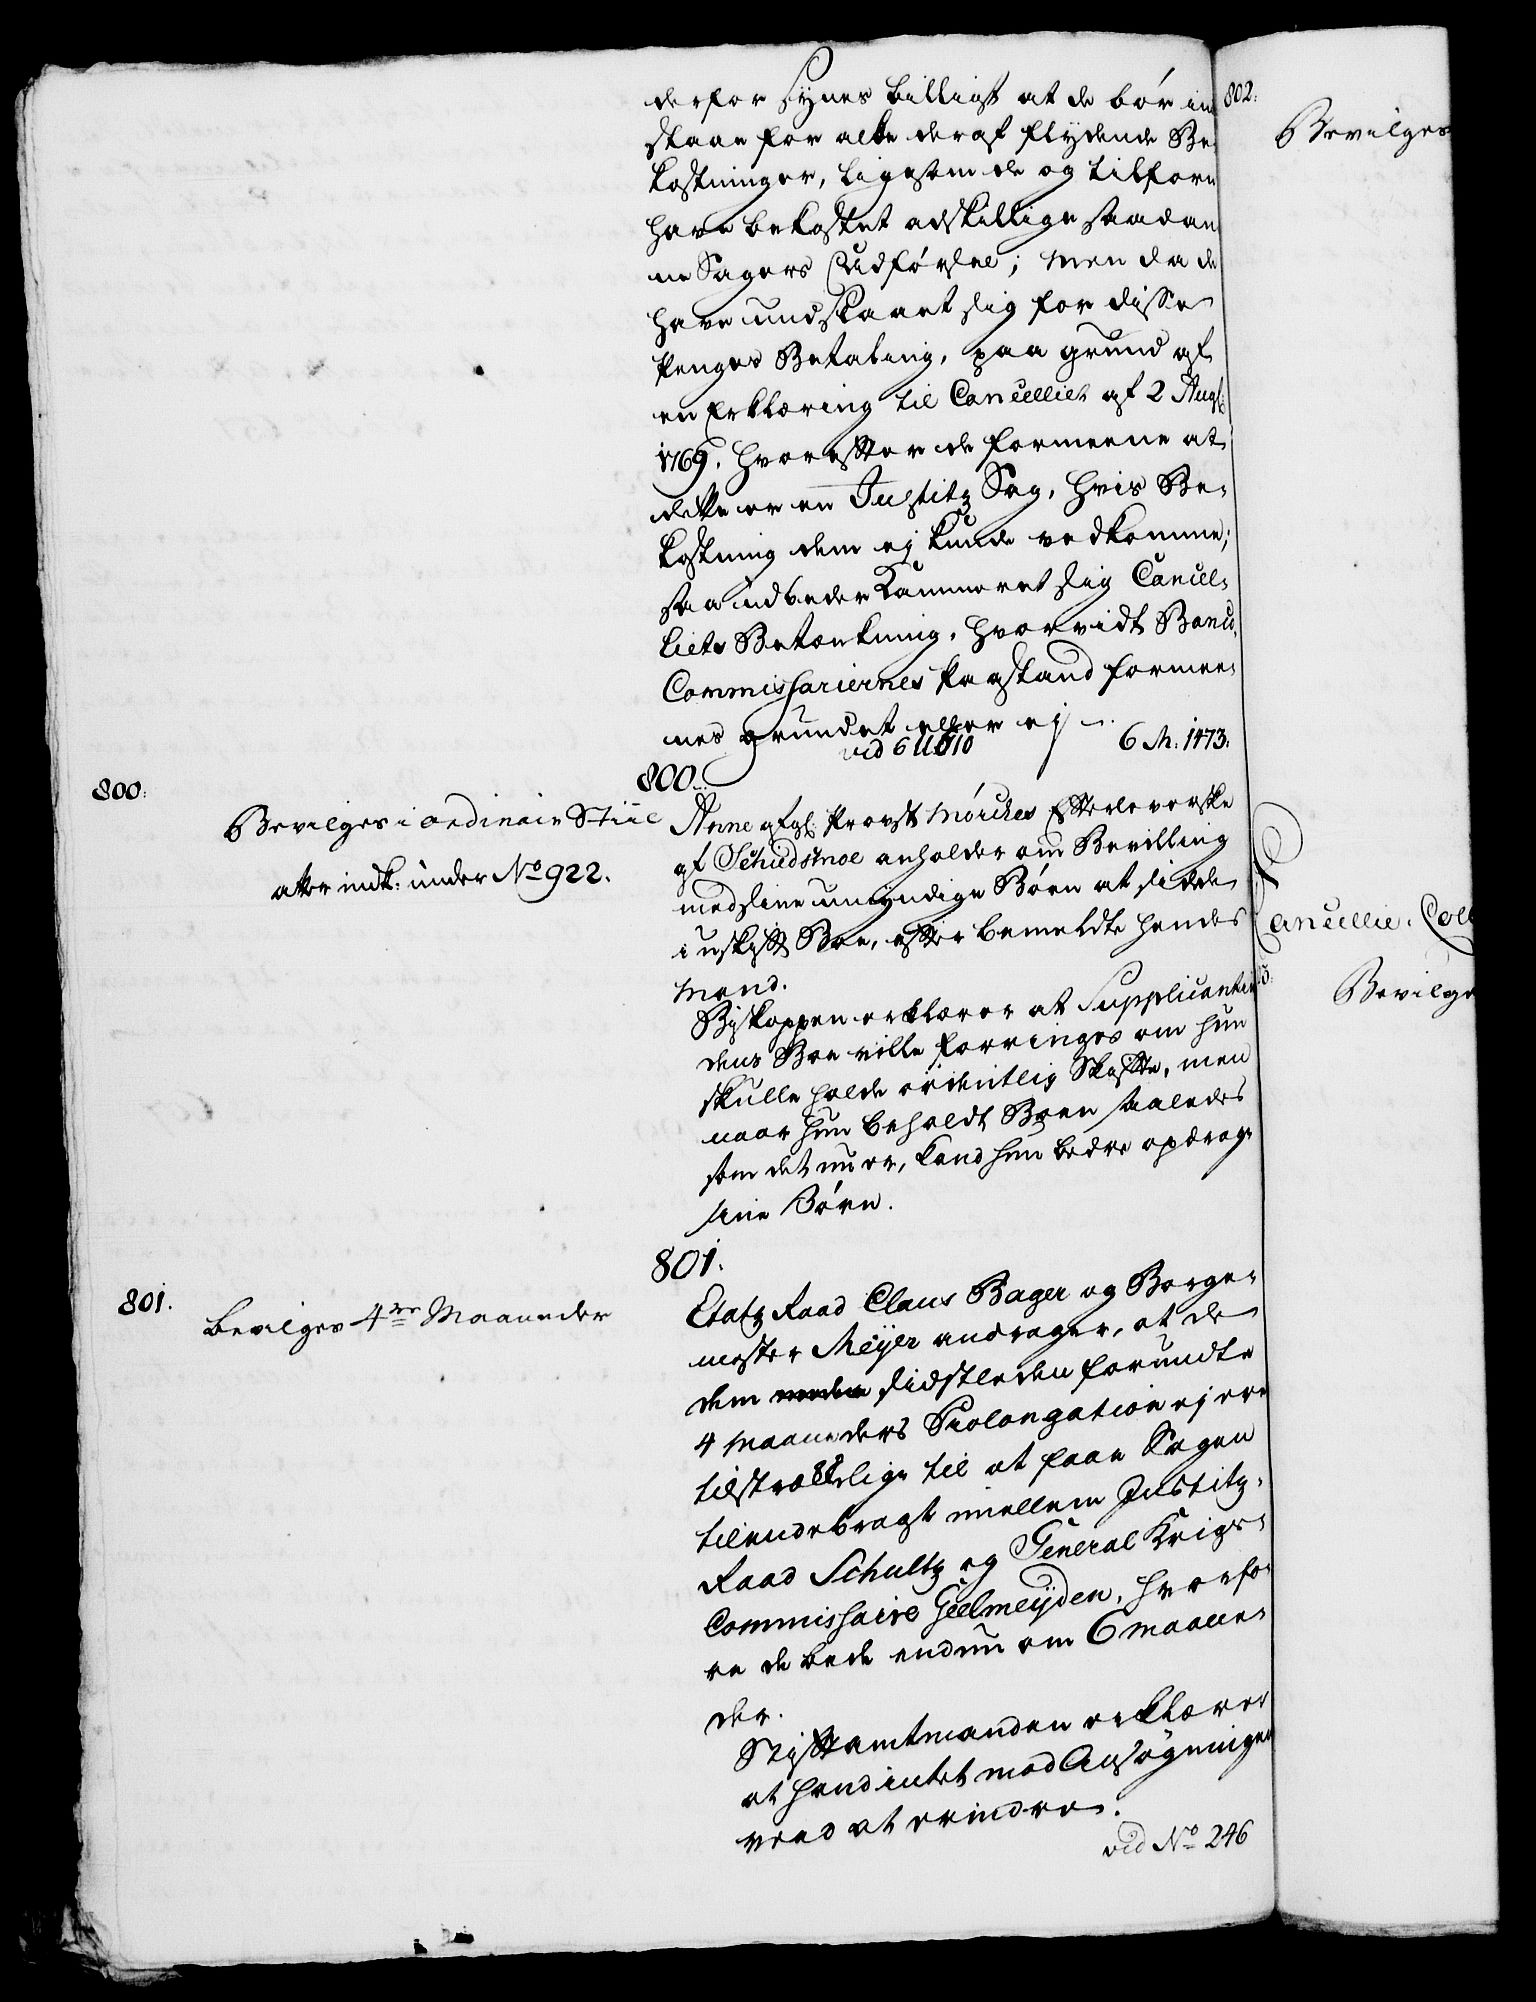 derfor synes billigst at de bør in
staae for alle deraf flydende Be-
kostninger, ligesom de og tilforn
have bekostet adskillige saadan
ne Sagers Udførsel; men da de
have undslaaet sig for disse
Penges Betaling, paa grund af
en Erklæring til Cancelliet af 2 Augt:
1769, hvorefter de formeene at
dette er en Justitz Sag, hvis Be-
kostning dem ej kunde vedkomme;
saa udbeder Kammeret sig Cancel-
liets Betænkning, hvorvidt Banco
Commissariernes Paastand formee-
nes grundet eller ej
6 M: 1473.
800:
Bevilges i ordinair Stiil
atter indk: under No 922.
800.
Anne afgl: Provst Mörches Efterleverske
af Schudsmoe anholder om Bevilling
med sine umyndige Börn at sidde
i uskift Boe, efter bemeldte hendes
Mand.
Biskoppen erklærer at Supplicantin
dens Boe ville forringes om hun
skulle holde ordentlig Skifte, men
naar hun beholdt Boen saaledes
som det nu er, kand hun bedre opdrage
sine Börn.
801.
bevilges 4re Maaneder
801.
Etatz Raad Claus Bager og Borge-
mester Meyer andrager, at de
dem sidstleden forundte
4 Maaneders Prolongation ej ere
tilstrækkelige til at faae Sagen
tilendebragt imellem Justitz-
Raad Schultz og General Krigs-
Commissaire Geelmeyden, hvorfo-
re de bede endnu om 6 Maane-
der.
Stiftamtmanden erklærer
at hand intet mod Ansøgningen
veed at erindre.
vid No 246
802:
Bevilges
Cancellie Coll
Bevilge